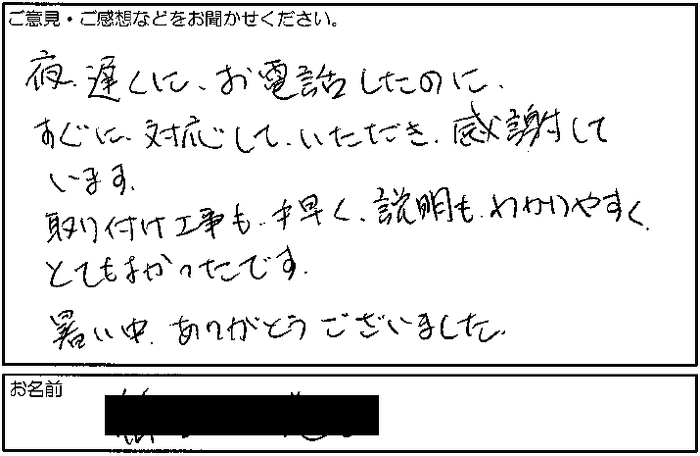 ご意見・ご感想などをお聞かせください。
夜、遅くに、お電話したのに、
すぐに、対応して、いただき、感謝して
います。
取り付け工事も、手早く、説明も、わかりやすく、
とてもよかったです。
暑い中、ありがとうございました。
お名前